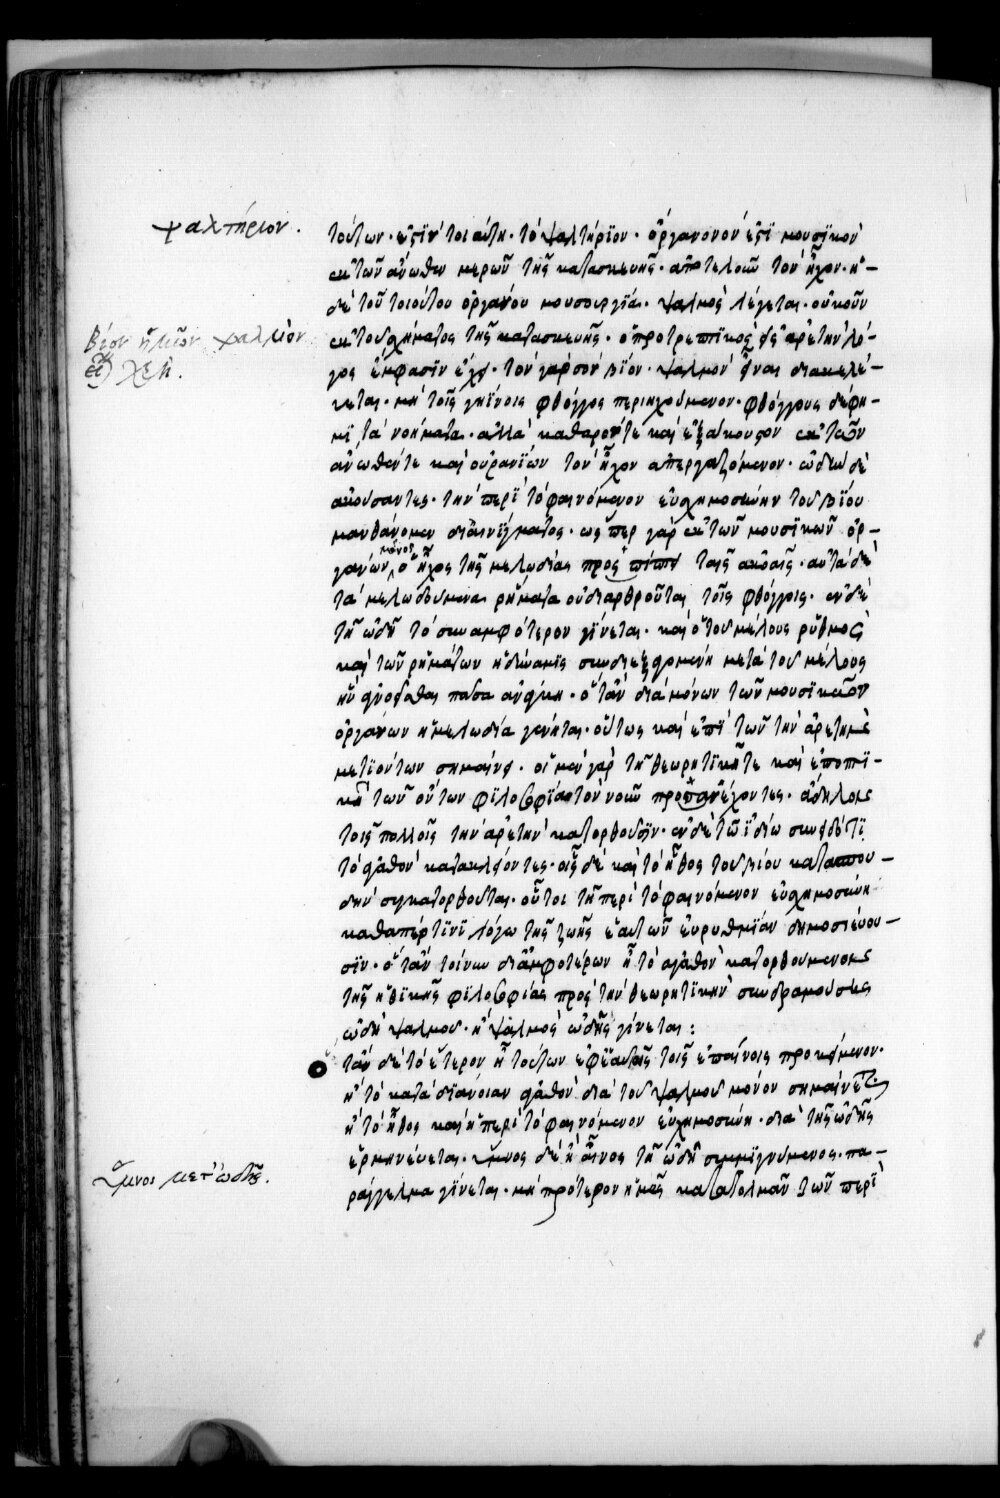 ψαλτήριον.
τούτων· ἐστὶν τοιαύτη· τὸ ψαλτήριον· ὄργανόν ἐστι μουσικὸν
ἐκ τῶν ἄνωθεν μερῶν τῆς κατασκευῆς· ἀποτελοῦν τὸν ἦχον· ἡ
δὲ τοῦ τοιούτου ὀργάνου μουσουργία· ψαλμὸς λέγεται· οὐκοῦν
Βίον ψαλμὸν
ἐκ τοῦ σχήματος τῆς κατασκευῆς· ὁ προτρεπτικὸς εἰς ἀρετὴν λό–
γος ἔμφασιν ἔχει· τὸν γὰρ σὸν βίον· ψαλμὸν εἶναι διακελεύ–
εται· μὴ τοῖς γηΐνοις φθόγγοις περιηχούμενον· φθόγγους δέ φη–
μι τὰ νοήματα· ἀλλὰ καθαρόν τε καὶ ἐξάκουστον ἐκ τῶν
ἄνωθέν τε καὶ οὐρανίων τὸν ἦχον ἀπεργαζόμενον· ᾠδὴν δὲ
ἀκούσαντες· τὴν περὶ τὸ φαινόμενον εὐσχημοσύνην τοῦ βίου
μανθάνομεν δι' αἰνίγματος· ὥσπερ γὰρ ἐκ τῶν μουσικῶν ὀρ–
γάνων μόνος ὁ ἦχος τῆς μελωδίας προσπίπτει ταῖς ἀκοαῖς· αὐτὰ δὲ
τὰ μελωδούμενα ῥήματα οὐ διαρθροῦται τοῖς φθόγγοις· ἐν δὲ
τῇ ᾠδῇ τὸ συναμφότερον γίνεται· καὶ ὁ τοῦ μέλους ῥυθμὸς
καὶ τῶν ῥημάτων ἡ δύναμις συνδιεξαγομένη μετὰ τοῦ μέλους
ἣν ἀγνοεῖσθαι πᾶσα ἀνάγκη· ὅταν διὰ μόνων τῶν μουσικῶν
ὀργάνων ἡ μελωδία γένηται· οὕτως καὶ ἐπὶ τῶν τὴν ἀρετὴν
μετιόντων σημαίνει· οἱ μὲν γὰρ τῇ θεωρητικῇ τε καὶ ἐποπτι–
κῇ τῶν ὄντων φιλοσοφίᾳ τὸν νοῦν προσανέχοντες· ἄδηλον
τοῖς πολλοῖς τὴν ἀρετὴν κατορθοῦσιν· ἐν δὲ τῷ ἰδίῳ συνειδότι
τὸ ἀγαθὸν κατακλείοντες· οἷς δὲ καὶ τὸ ἦθος τοῦ βίου κατὰ σπου–
δὴν συγκατορθοῦται· οὗτοι τῇ περὶ τὸ φαινόμενον εὐσχημοσύνῃ
καθάπέρ τινι λόγῳ τῆς ζωῆς ἑαυτῶν εὐρυθμίαν δημοσιεύου–
σιν· ὅταν τοίνυν δι' ἀμφοτέρων ᾖ τὸ ἀγαθὸν κατορθούμενον
τῆς ἠθικῆς φιλοσοφίας πρὸς τὴν θεωρητικὴν συνδραμούσης
ᾠδὴ ψαλμοῦ· ἢ ψαλμὸς ᾠδῆς γίνεται:
ὅταν δὲ τὸ ἕτερον ᾖ τούτων ἐφ' ἑαυτῆς τοῖς ἐπαίνοις προκείμενον·
ἢ τὸ κατὰ διάνοιαν ἀγαθὸν διὰ τοῦ ψαλμοῦ μόνον σημαίνεται
ἢ τὸ ἦθος καὶ ἡ περὶ τὸ φαινόμενον εὐσχημοσύνη· διὰ τῆς ᾠδῆς
ἑρμηνεύεται· ὕμνος δὲ ἢ αἶνος τῇ ᾠδῇ συμμιγνύμενος· πα–
ὕμνοι μετ' ᾠδῆς.
ράγγελμα γίνεται· μὴ πρότερον ἡμᾶς κατατολμᾶν τῶν περὶ